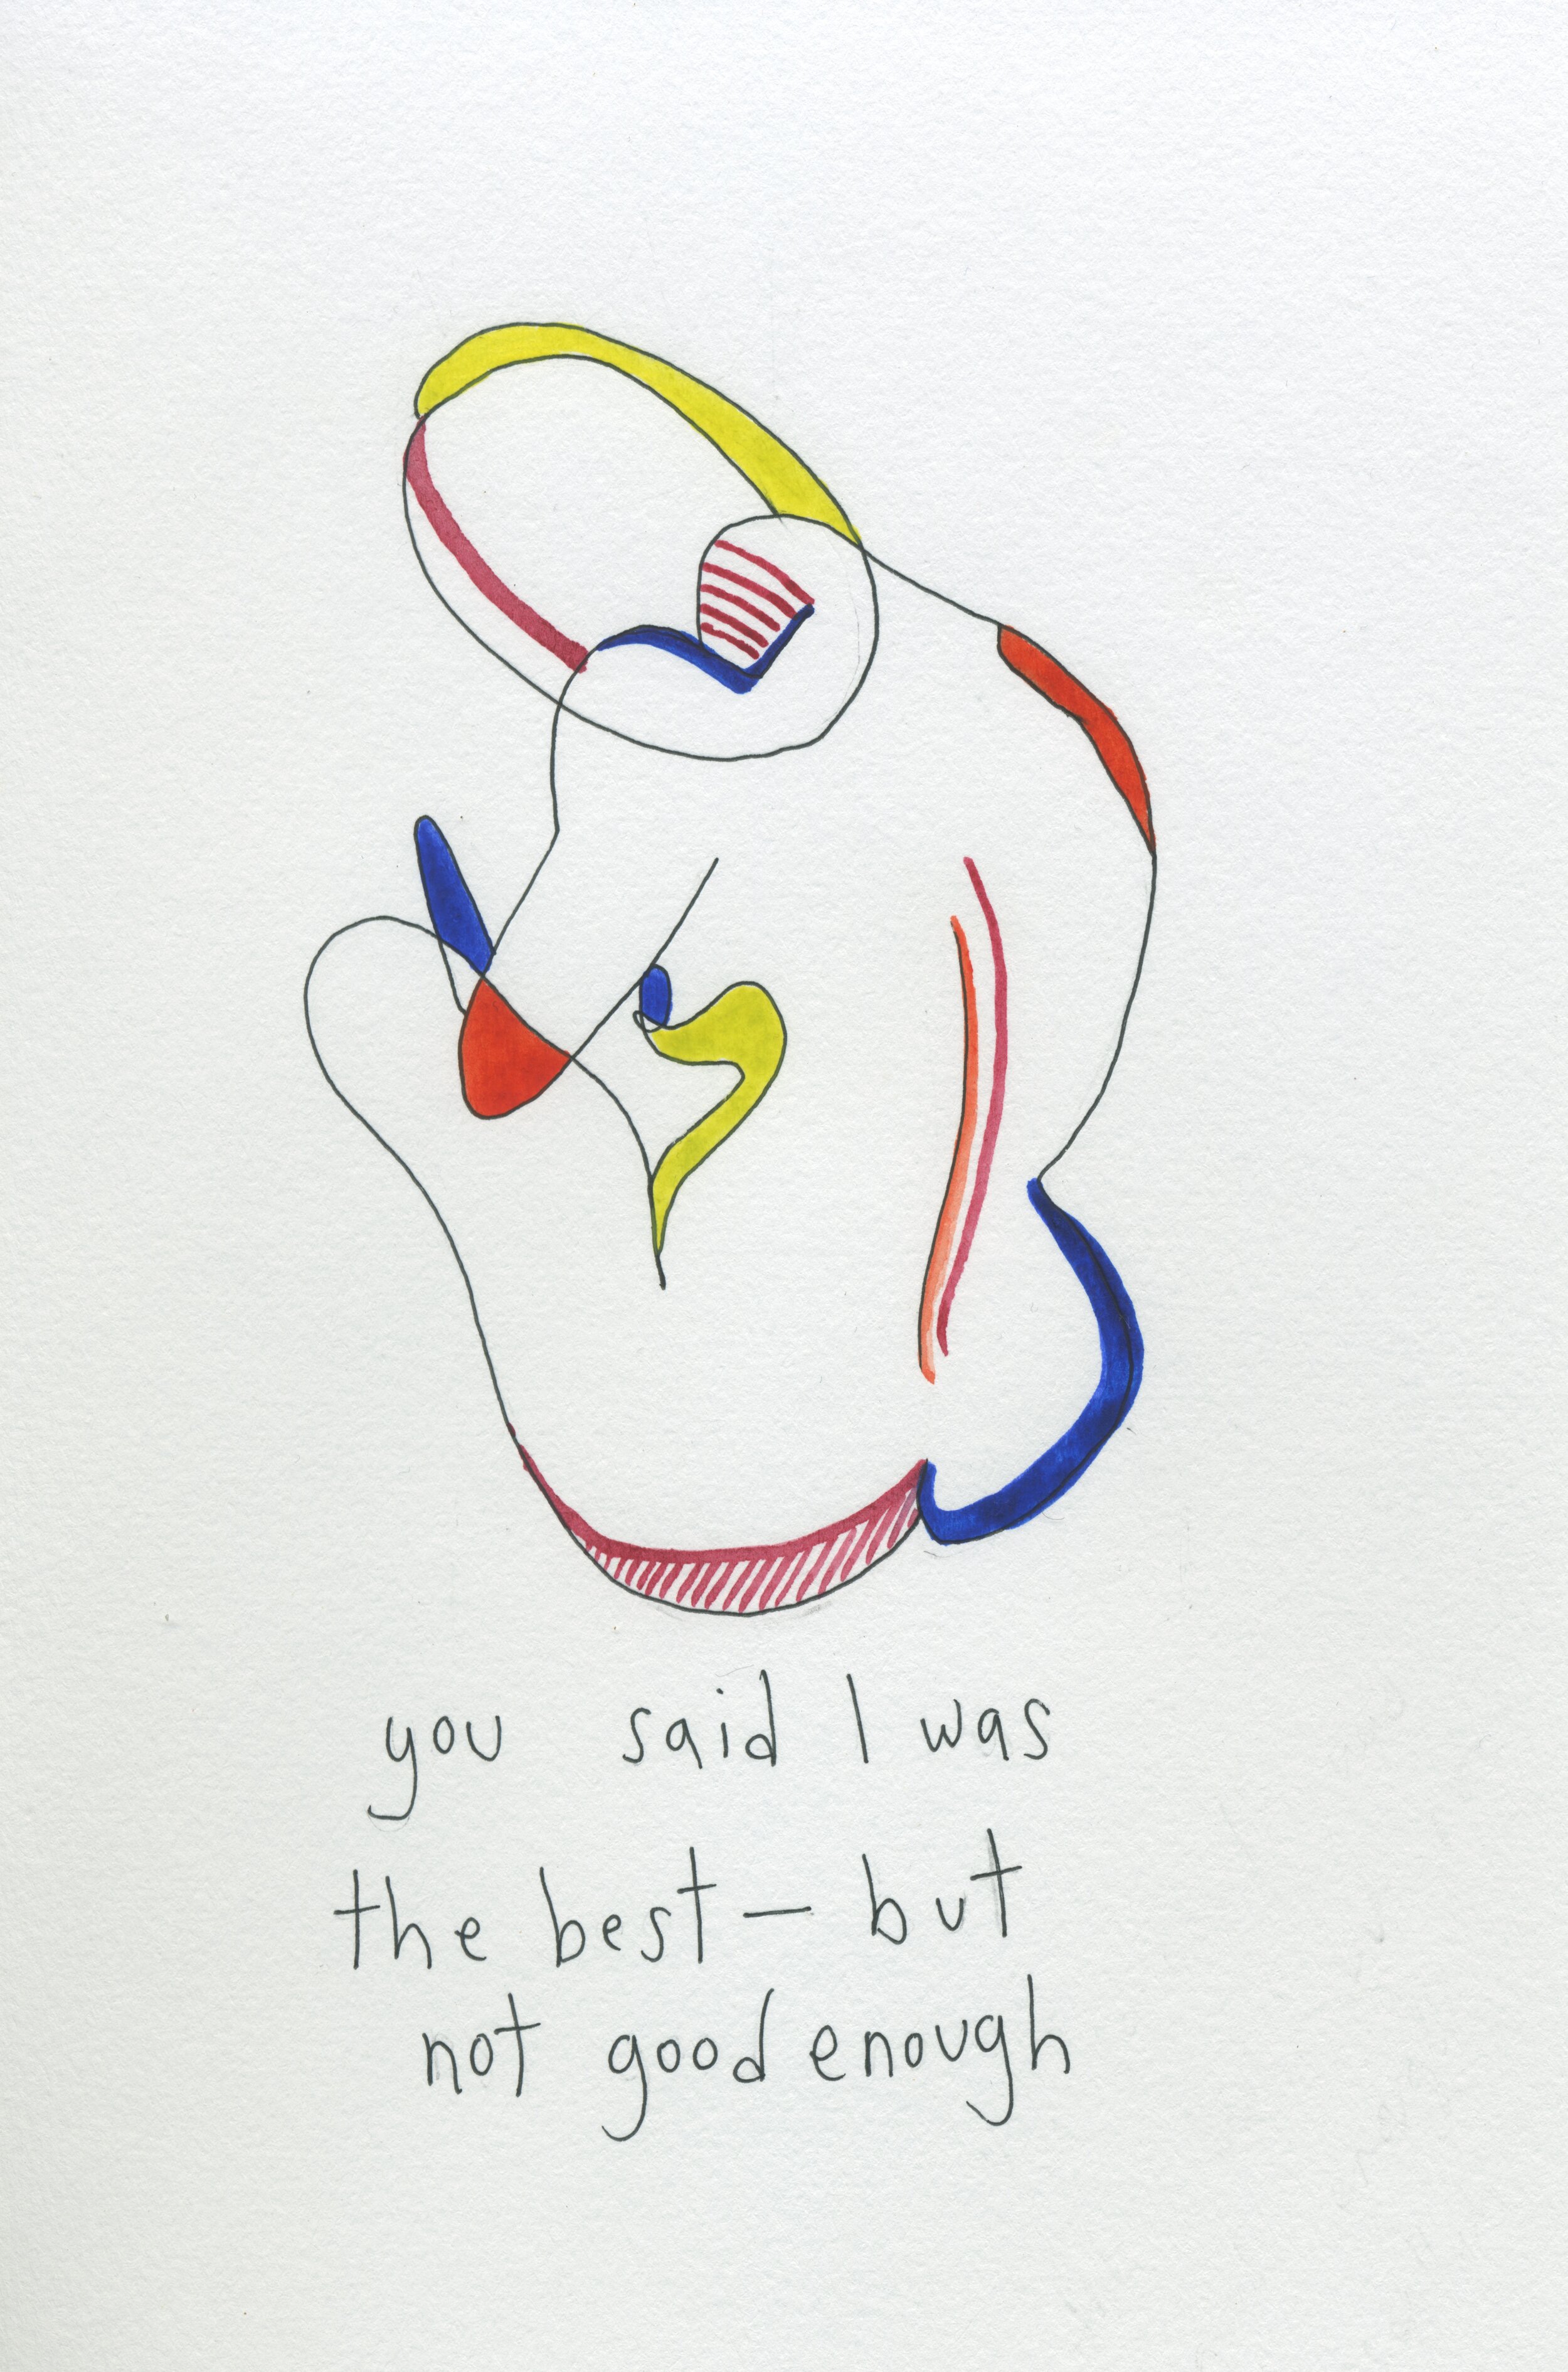 you said I was
the best — but
not good enough